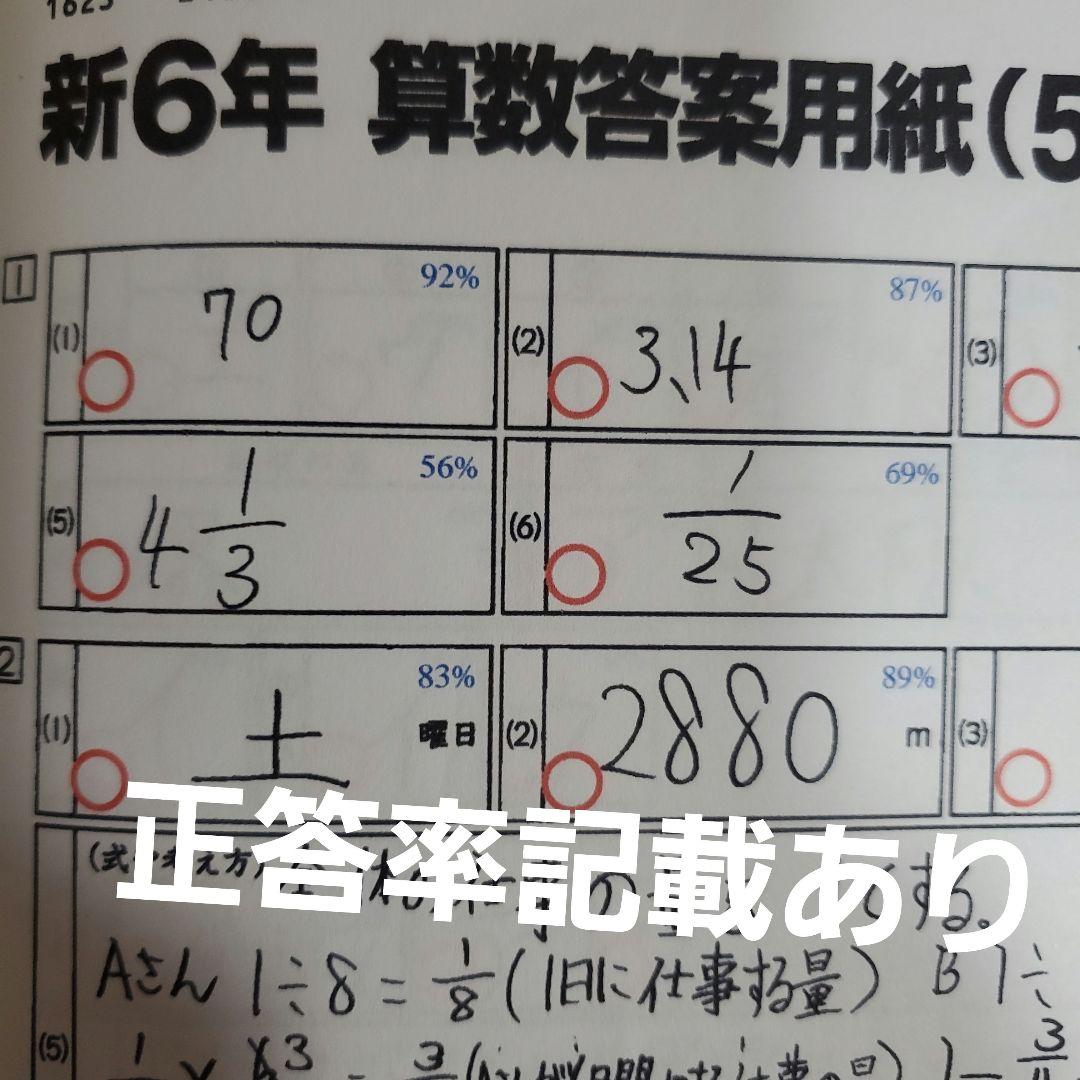 1623
新6年 算数答案用紙(5
1
(1) 70 92%
(2) 3.14 87%
(3)
(5) 4 1/3 56%
(6) 1/25 69%
2
(1) 土 曜日 83%
(2) 2880 m 89%
(3)
正答率記載あり
(式や考え方) する。
Aさん 1÷8=1/8(1日に仕事する量) B 1÷
(5)